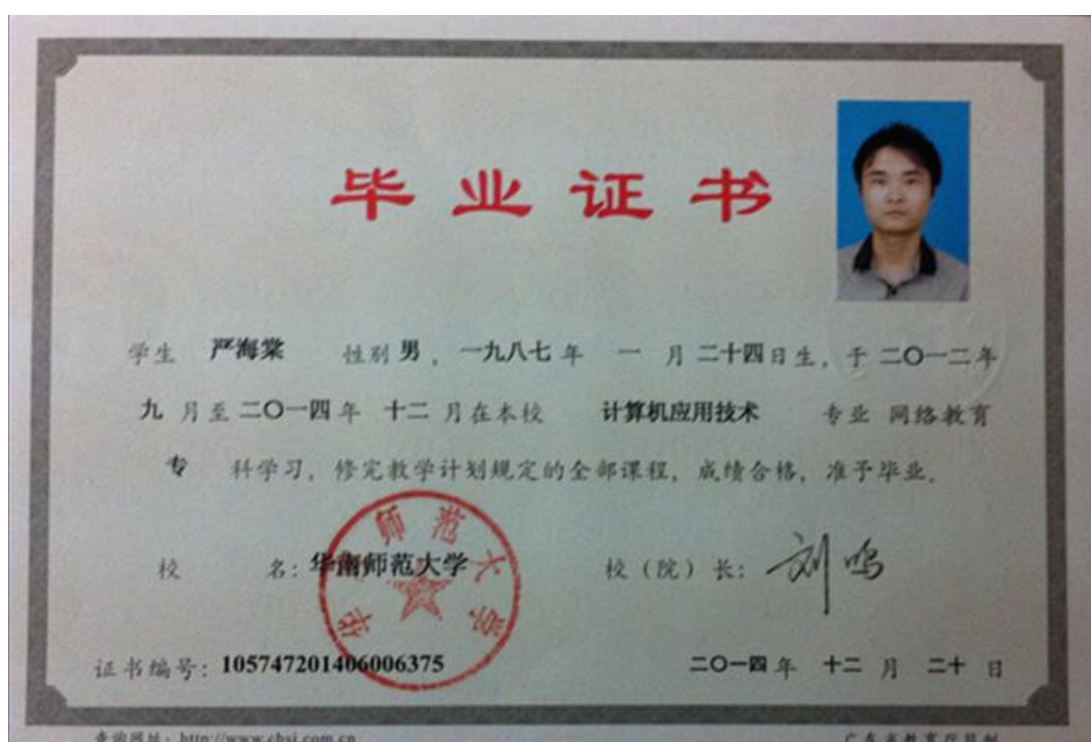 毕业证书
学生 严海棠 性别 男 ，一九八七 年 一 月 二十四 日生，于 二〇一二 年
九 月至 二〇一四 年 十二 月在本校 计算机应用技术 专业 网络教育
专 科学习，修完教学计划规定的全部课程，成绩合格，准予毕业。
校 名：华南师范大学 校（院）长：刘鸣
华南师范大学
证书编号：105747201406006375 二〇一四 年 十二 月 二十 日
查询网址：http://www.chsi.com.cn 广东省教育厅监制